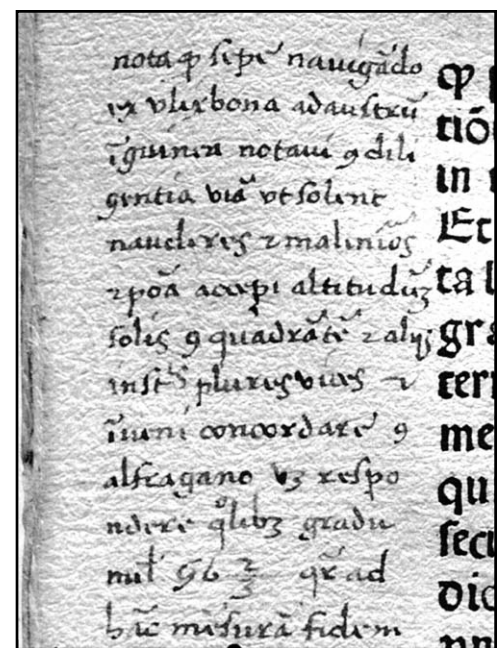 nota ꝙ sepe navigãdo
ex vlixbona ad austrũ
ĩ guinea notavi ꝯ dili
gentia viã vt solent
naucleres ⁊ malinios
⁊ poã accepi altitudinẽ
solis ꝯ quadrãtẽ ⁊ alijs
inst̃s plures vices ⁊
ĩveni concordare ꝯ
alfragano vꝫ respo
ndere q̊libꝫ gradu
mil̃ 56 2/3 qr̃ ad
hãc mẽsurã fidem
ꝙ
tiõ
in
Et
ta
gra
terr
me
qu
secu
dic